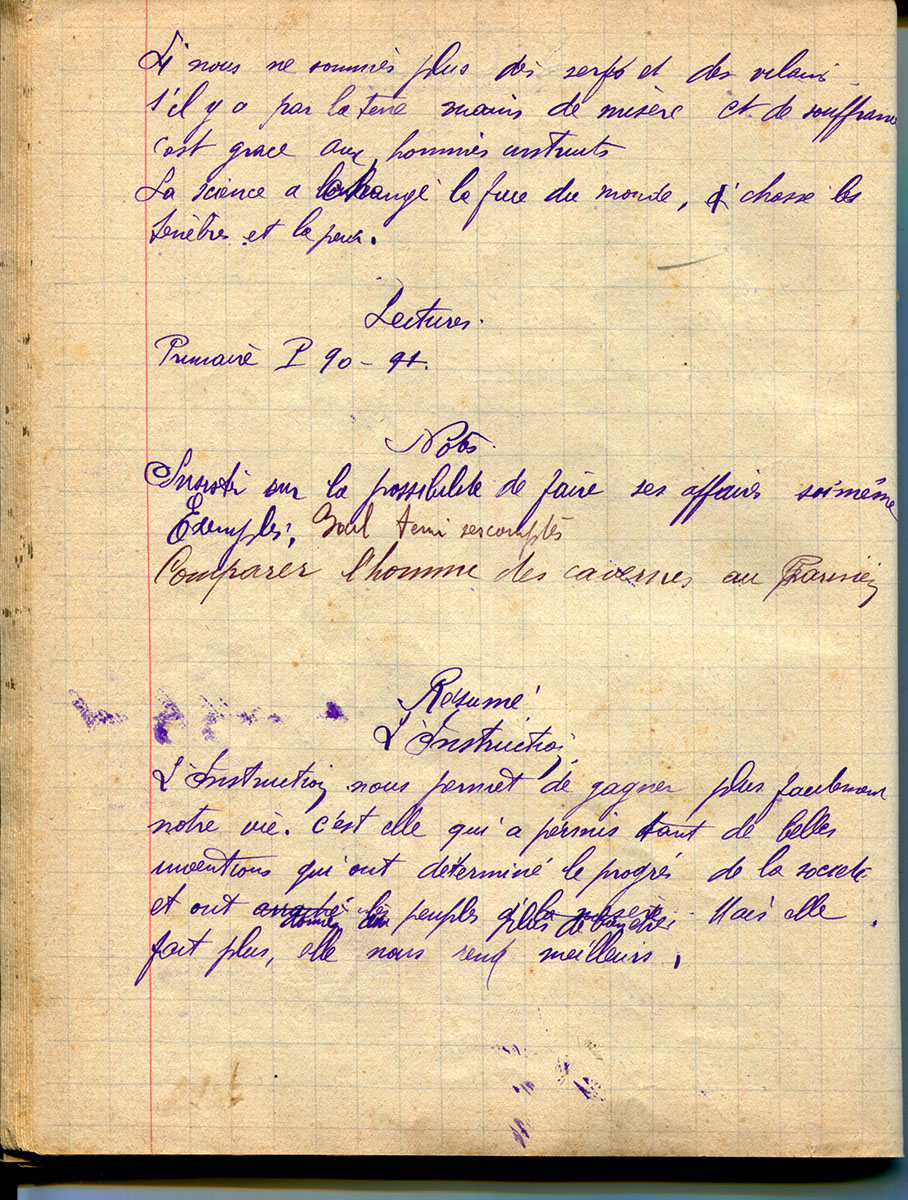 Si nous ne sommes plus des serfs et des vilains
s'il y a par la terre moins de misère et de souffrance
c'est grace aux hommes instruits
La science a changé la face du monde, chassé les
ténèbres et la peur.
Lectures.
Primaire P 90 - 91.
Notes
Insister sur la possibilité de faire ses affaires soi même
Exemples, tenir ses comptes
Comparer l'homme des cavernes au
Résumé
L'Instruction
L'Instruction nous permet de gagner plus facilement
notre vie. C'est elle qui a permis tant de belles
inventions qui ont déterminé le progrés de la société
et ont donné aux peuples plus de bien être. Mais elle
fait plus, elle nous rend meilleurs.